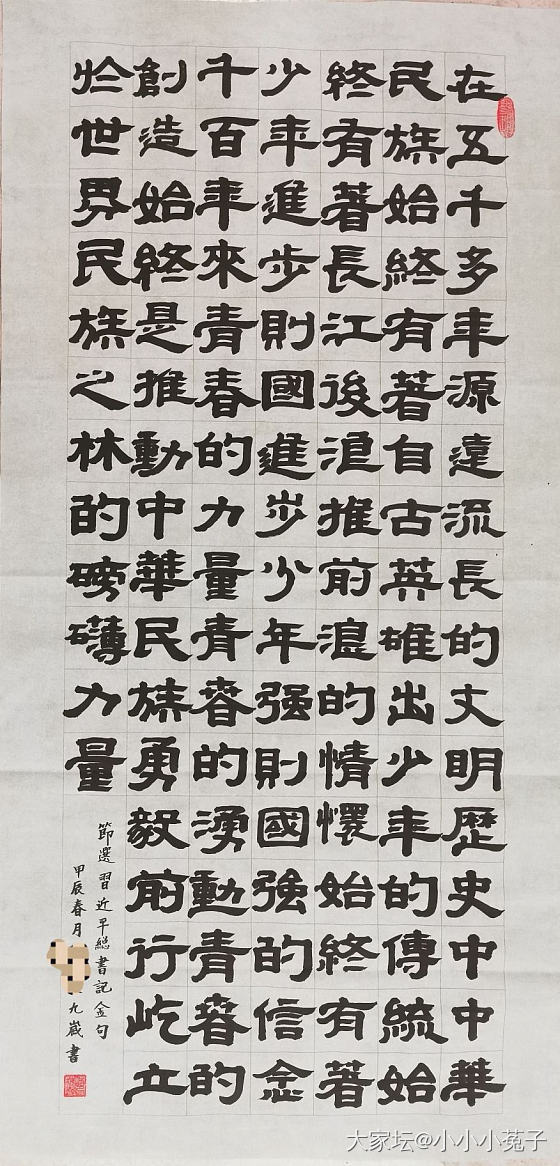 在五千多年源遠流長的文明歷史中中華
民族始終有著自古英雄出少年的傳統始
終有著長江後浪推前浪的情懷始終有著
少年進步則國進步少年强則國強的信念
千百年來青春的力量青春的湧動青春的
創造始終是推動中華民族勇毅前行屹立
於世界民族之林的磅礴力量
節選習近平總書記金句
甲辰春月九歲書
大家坛@小小小菟子